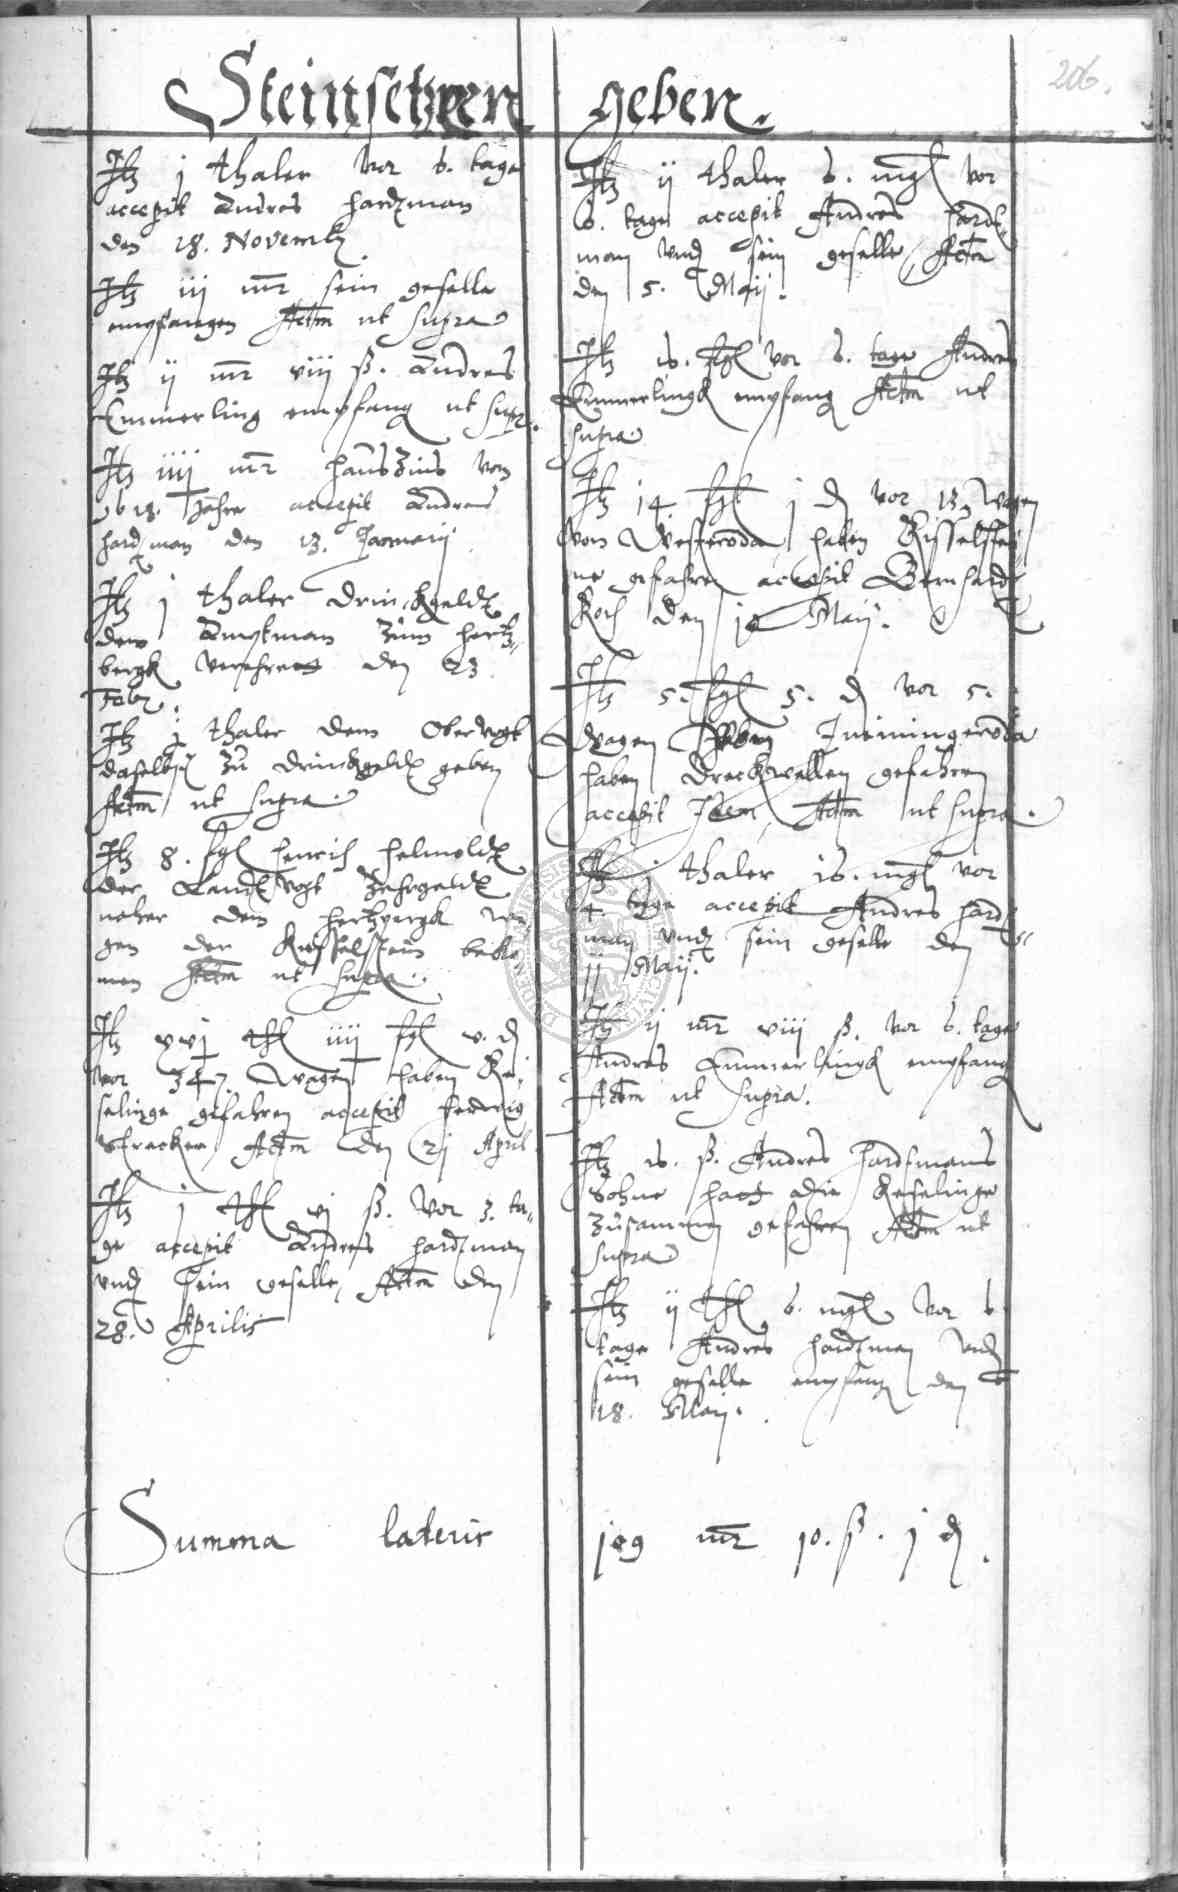 206.
Steinsetzeren geben.
Itz j thaler vor 6. tage
accepit Andres Hardtman
den 18. Novemb.
Itz iij mr sein geselle
empfangen Actm ut supra
Itz ij mr viij ß. Andres
Emmerling empfang ut supr.
Itz iiij mr hauszins vom
Jahre accepit Andreas
hardtman den 13. Januarij
Itz j thaler Drinckgeldt
dem Amptman zum hertz-
bergk verehret den 23
Febr.
Itz j thaler dem Obervogt
daselbst zu drinckgeldt geben
Actm ut supra.
Itz 8. fgl henrich helmoldt
der Landtvogt Zehrgeldt
naher dem hertzbergk we-
gen der Kisselstein bekom
men Actm ut supra.
Itz xvj thl iiij fgl v. d
vor 347. wagen haben Ke-
selinge gefahren accepit
Strecker Actm den 21 April
Itz j thl vj ß. vor 3. ta-
ge accepit Andres hardtman
undt sein geselle, Actm den
28. Aprilis
Itz ij thaler 6. mgl vor
6. tage accepit Andres Hardt
man undt sein geselle, Actm
den 5. Maij.
Itz 16. fgl vor 6. tage Andres
Emmerlingk empfang Actm ut
supra
Itz 14. fgl j d vor 13. wagen
von Westeroda haben Kisselstei
ne gefahren accepit Bernhardt
Koch den 10 Maij.
Itz 5. fgl 5. d vor 5.
Wagen haben Inemingeroda
haben Dreckwellen gefahren
accepit Idem, Actm ut supra.
Itz j thaler 16. mgl vor
4. tage accepit Andres hardt-
man undt sein geselle den
11 Maij.
Itz ij mr viij ß. vor 6. tage
Andres Emmerlingk empfang
Actm ut supra.
Itz 16. ß. Andres Hardtmans
Sohne hatt die Keselinge
zusammen gefahren Actm ut
supra
Itz ij thl 6. mgl vor 6
tage Andres hardtman undt
sein geselle empfang den
18. Maij.
Summa lateris 109 mr 10. ß. j d.